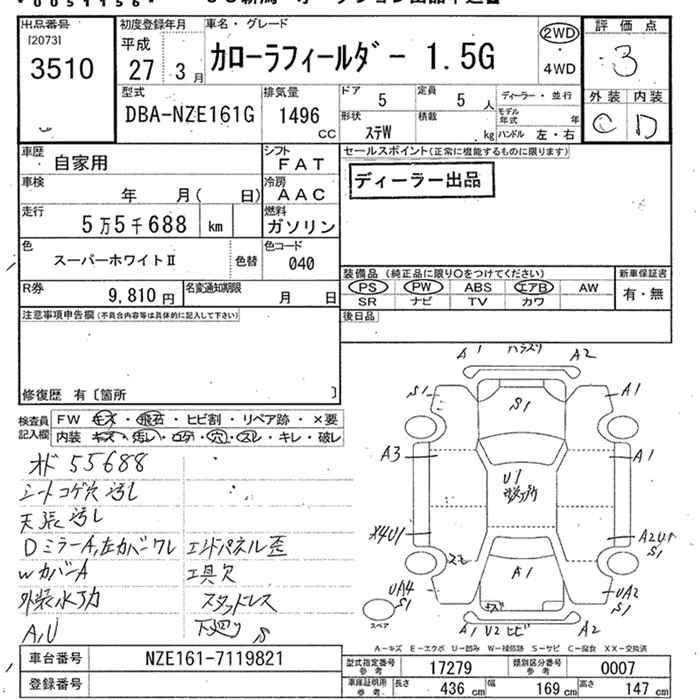 出品番号
[2073]
3510
初度登録年月
平成
27 3月
車名・グレード
カローラフィールダー 1.5G
2WD
・
4WD
評価点
3
外装 内装
C D
型式
DBA-NZE161G
排気量
1496
CC
ドア
5
定員
5 人
ディーラー・並行
モデル年式 年
形状
ステW
積載
kg
ハンドル 左・右
車歴
自家用
シフト
FAT
セールスポイント(正常に機能するものに限ります)
ディーラー出品
車検
年 月( 日)
冷房
AAC
走行
5万5千688 km
燃料
ガソリン
色
スーパーホワイトⅡ
色替
色コード
040
装備品(純正品に限り○をつけてください)
PS PW ABS エアB AW
SR ナビ TV カワ
新車保証書
有・無
R券
9,810円
名変通知期限
月 日
後日品
注意事項申告欄(不具合内容等は具体的に記入して下さい)
修復歴 有〔箇所 〕
検査員記入欄
FW キズ・飛石・ヒビ割・リペア跡・×要
内装 キズ・汚レ・コゲ・穴・スレ・キレ・破レ
オド 55688
シートコゲ穴汚し
天張汚し
DミラーA,左カバーワレ
エンドパネル歪
WカバーA
工具欠
外装水アカ
スタッドレス
A,U
下廻りS
A1
A2
S1
S1
A1
A3
U1
A1
X4U1
A2U1
S1
A1
UA4
S1
UA2
S1
スペア
A1 U2 ヒビ
A2
A－キズ E－エクボ U－凹み W－補修跡 S－サビ C－腐食 XX－交換済
車台番号
NZE161-7119821
登録番号
型式指定番号
参考
17279
類別区分番号
参考
0007
車庫証明用
参考
長さ
436 cm
幅
169 cm
高さ
147 cm